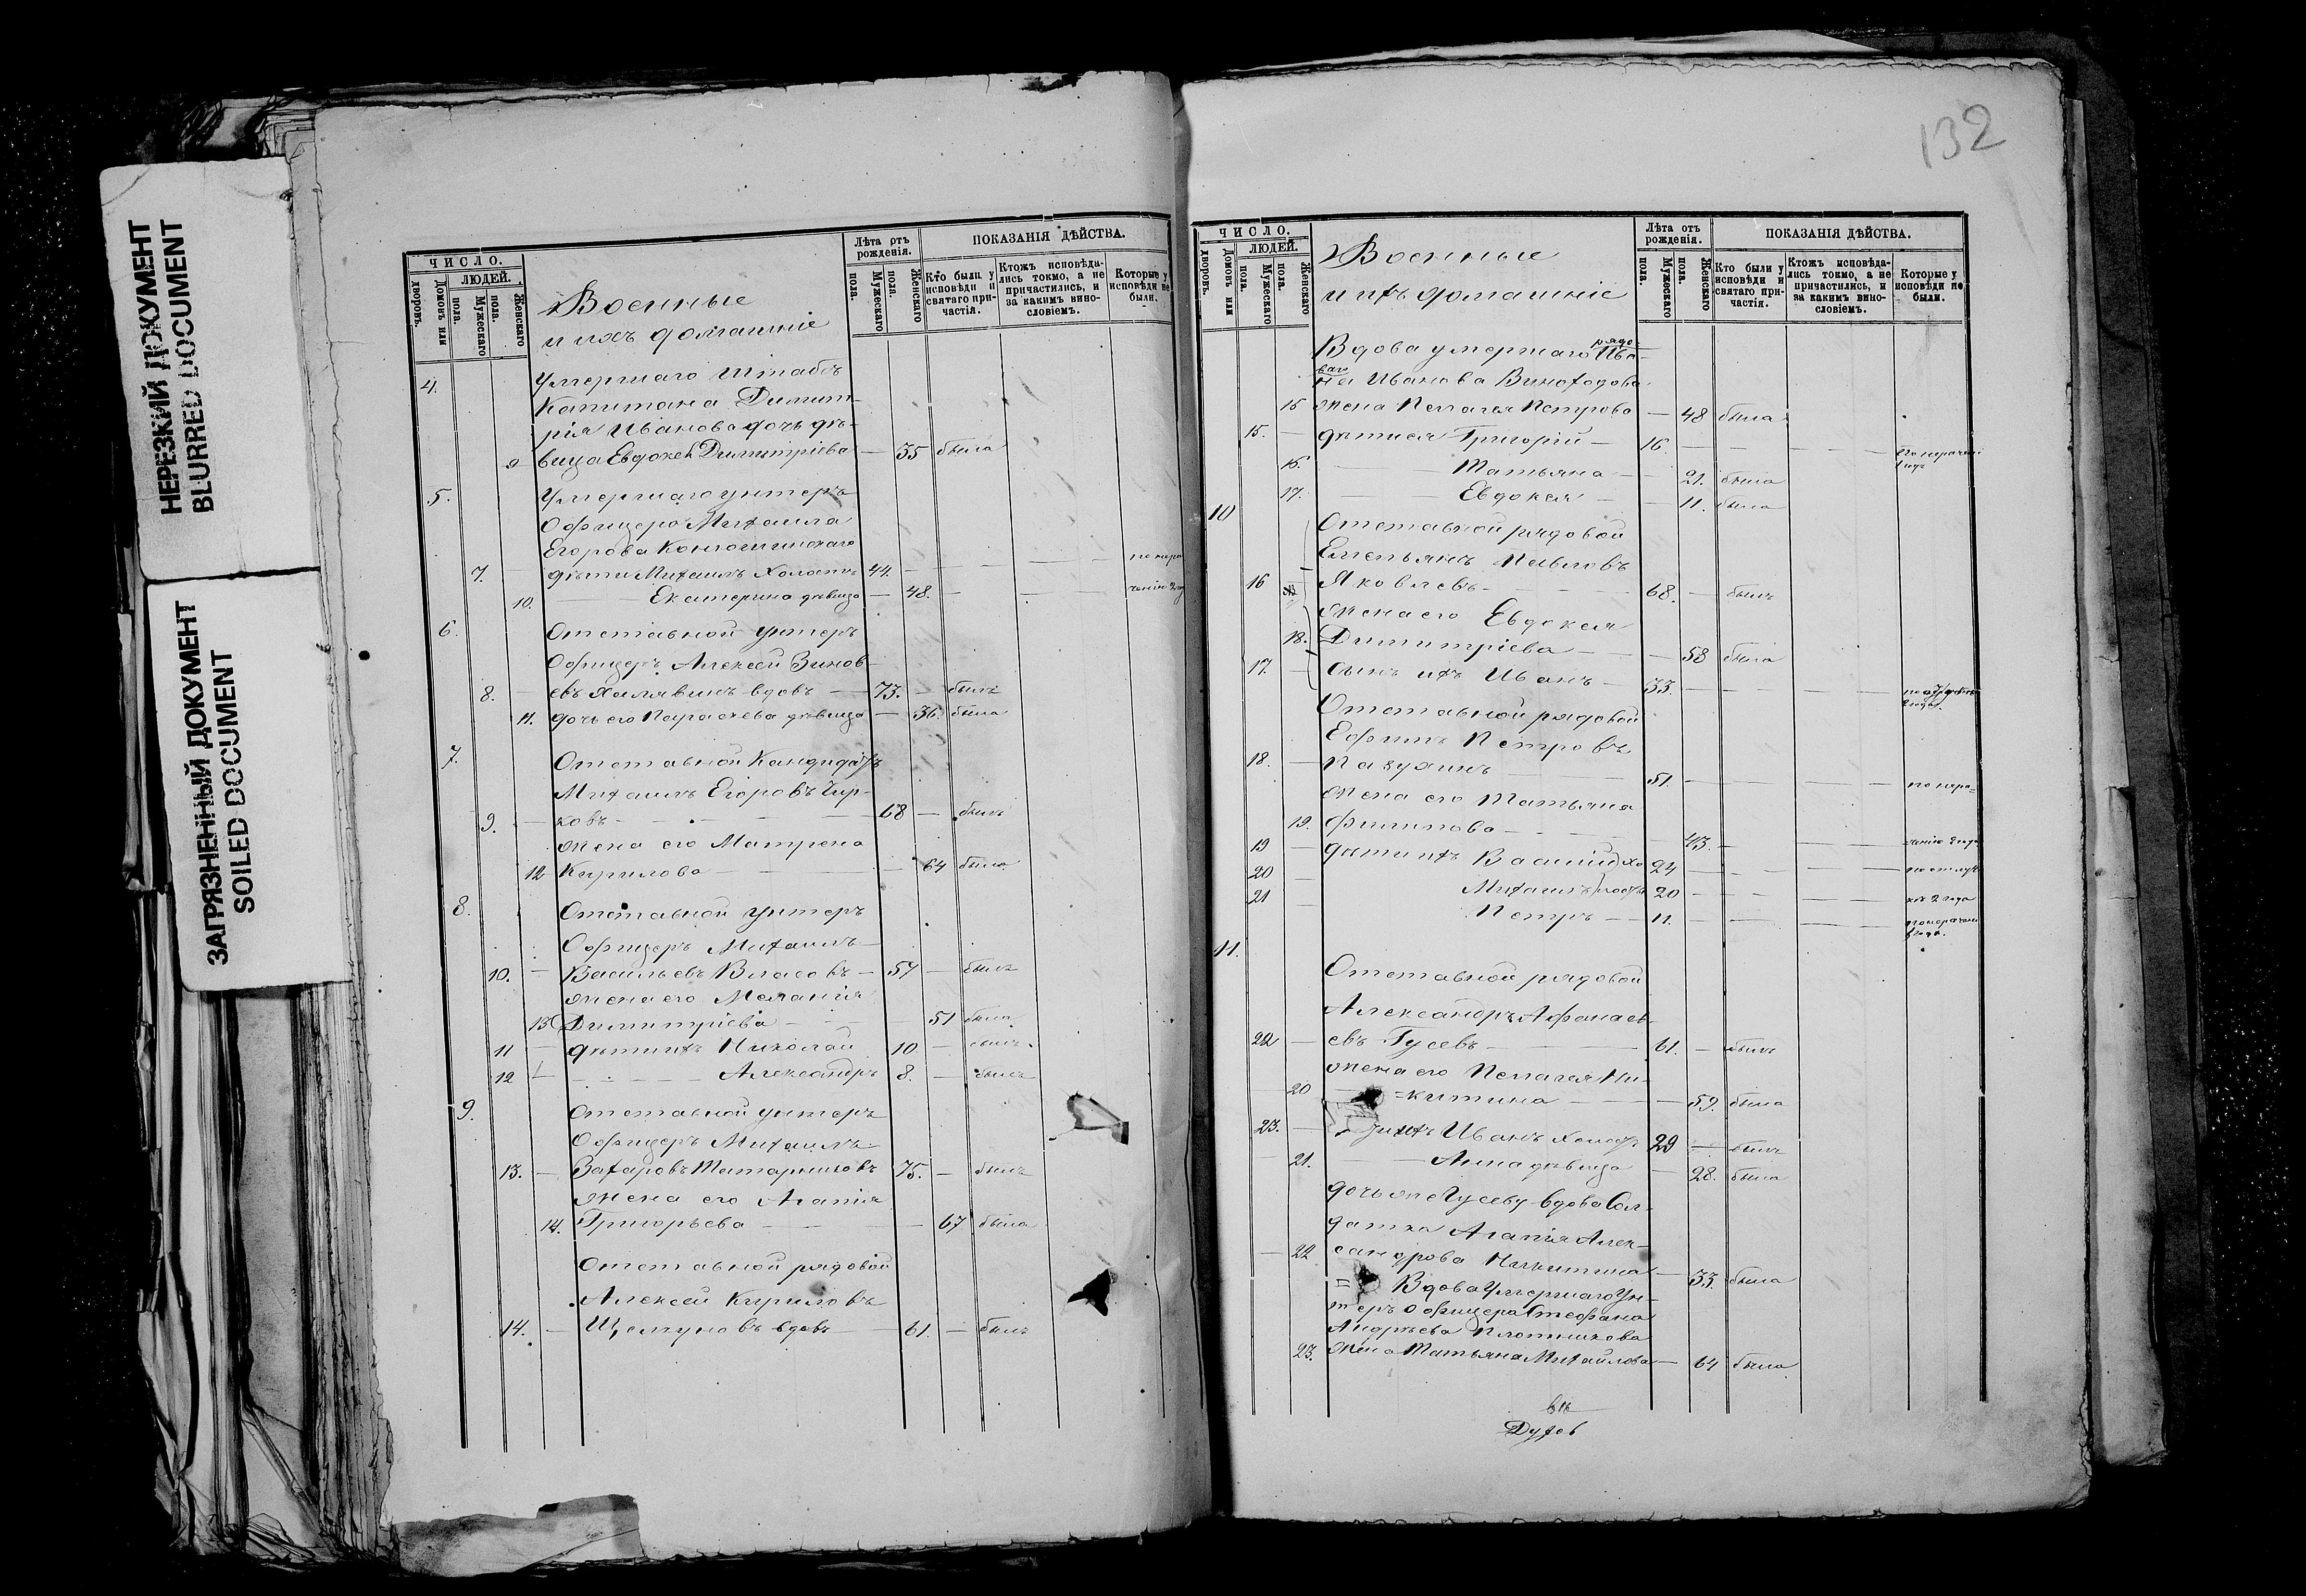 НЕРЕЗКИЙ ДОКУМЕНТ
BLURRED DOCUMENT
ЗАГРЯЗНЕННЫЙ ДОКУМЕНТ
SOILED DOCUMENT
ЧИСЛО.
ЛЮДЕЙ.
Домовъ или дворовъ.
Мужескаго пола.
Женскаго пола.
Военные
и ихъ домашніе
Лѣта отъ рожденія.
Мужескаго пола.
Женскаго пола.
ПОКАЗАНІЯ ДѢЙСТВА.
Кто были у исповѣди и святаго причастія.
Ктожъ исповѣдались токмо, а не причастились, и за какимъ винословіемъ.
Которые у исповѣди не были.
4. Умершаго Штабъ
Капитана Димит-
рія Иванова дочь дѣ-
9 вица Евдокея Димитріева — 35 была
5. Умершаго унтеръ
Офицера Михаила
Егорова
7. — дѣти Михаилъ Холостъ 44. — — — — по нера-
10. — Екатерина дѣвица — 48. — — — ченію 2 год
6. Отставной унтеръ
Офицеръ Алексей Зинов-
8. — евъ Халявинъ вдовъ — 73. — былъ
11. дочь его Параскева дѣвица — 36. была
7. Отставной Кандидатъ
Михаилъ Егоровъ Чир-
9. — ковъ — 68 — былъ
жена его Матрена
12 Кирилова — 64 была
8. Отставной унтеръ
Офицеръ Михаилъ
10. — Васильевъ Власовъ — 57 — былъ
жена его Меланія
13 Димитріева — 51 была
11 — дѣти ихъ Николай 10 — былъ
12 — Александръ 8. — былъ
9. Отставной унтеръ
Офицеръ Михаилъ
13. — Захаровъ Татарниковъ 75. — былъ
жена его Агапія
14. Григорьева — 67 была
Отставной рядовой
Алексей Кириловъ
14. — вдовъ — 61. — былъ
132
ЧИСЛО.
ЛЮДЕЙ.
Домовъ или дворовъ.
Мужескаго пола.
Женскаго пола.
Военные
и ихъ домашніе
Лѣта отъ рожденія.
Мужескаго пола.
Женскаго пола.
ПОКАЗАНІЯ ДѢЙСТВА.
Кто были у исповѣди и святаго причастія.
Ктожъ исповѣдались токмо, а не причастились, и за какимъ винословіемъ.
Которые у исповѣди не были.
рядо-
Вдова умершаго Ива-
ваго
на Иванова Виноходова
15 жена Пелагея Петрова — 48 была
15. — дѣти ея Григорій — 16. — — — —
16. — Татьяна — 21. была
17. — Евдокея — 11. была
10 Отставной рядовой
Емельянъ Павловъ
16 — Яковлевъ — 68. — былъ
жена его Евдокея
18. Димитріева — 58 была
17. — сынъ ихъ Иванъ — 33. — — — —
Отставной рядовой
Ефимъ Петровъ
18. — Пазухинъ — 51. — — — — по нера-
жена его Татьяна
19. Филипова — 43. — — — ченію 2 года
19 — дѣти ихъ Василій хо 24 — — — — по отлуч
20 — Михаилъ лосты 20 — — — — кѣ 2 года
21 — Петръ — 11. — — — —
11. Отставной рядовой
Александръ Афанась-
22 — евъ Гусевъ — 61. — былъ
жена его Пелагея Ни-
20 =китина — 59. была
23. — ихъ Иванъ холост 29 — былъ
21. — Анна дѣвица — 28. была
дочь же Гусеву вдова Сол-
датка Агапія Алек-
22 сандрова Никитина — 33. была
Вдова Умершаго Ун-
теръ Офицера Стефана
Андреева Плотникова
23. жена Татьяна Михайлова — 64 была
Духов